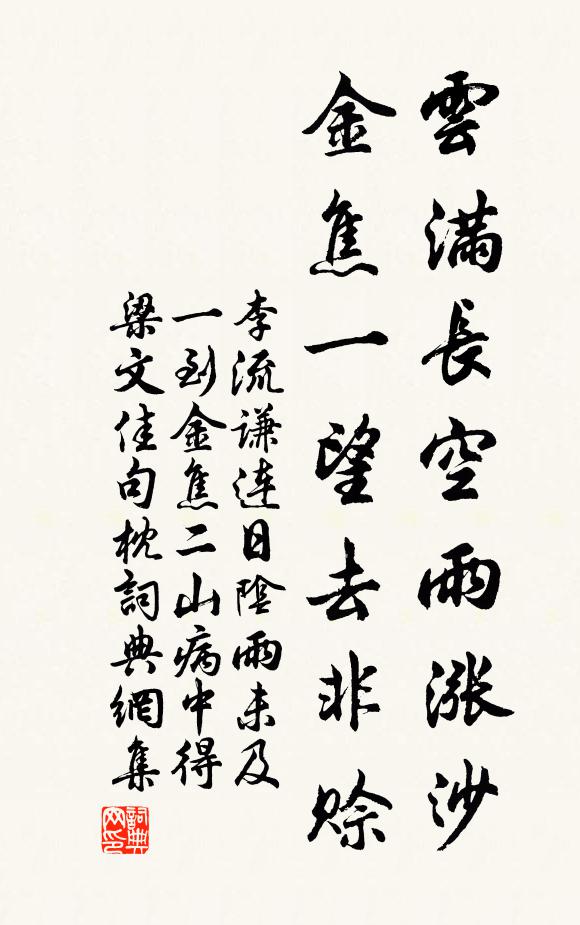 雲滿長空雨漲沙
金焦一望去非賒
李流謙連日陰雨未及
一到金焦二山病中得
梁文佳句枕詞典網集
詞典网印